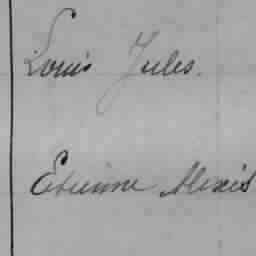 Louis Jules.
Etienne Alexis